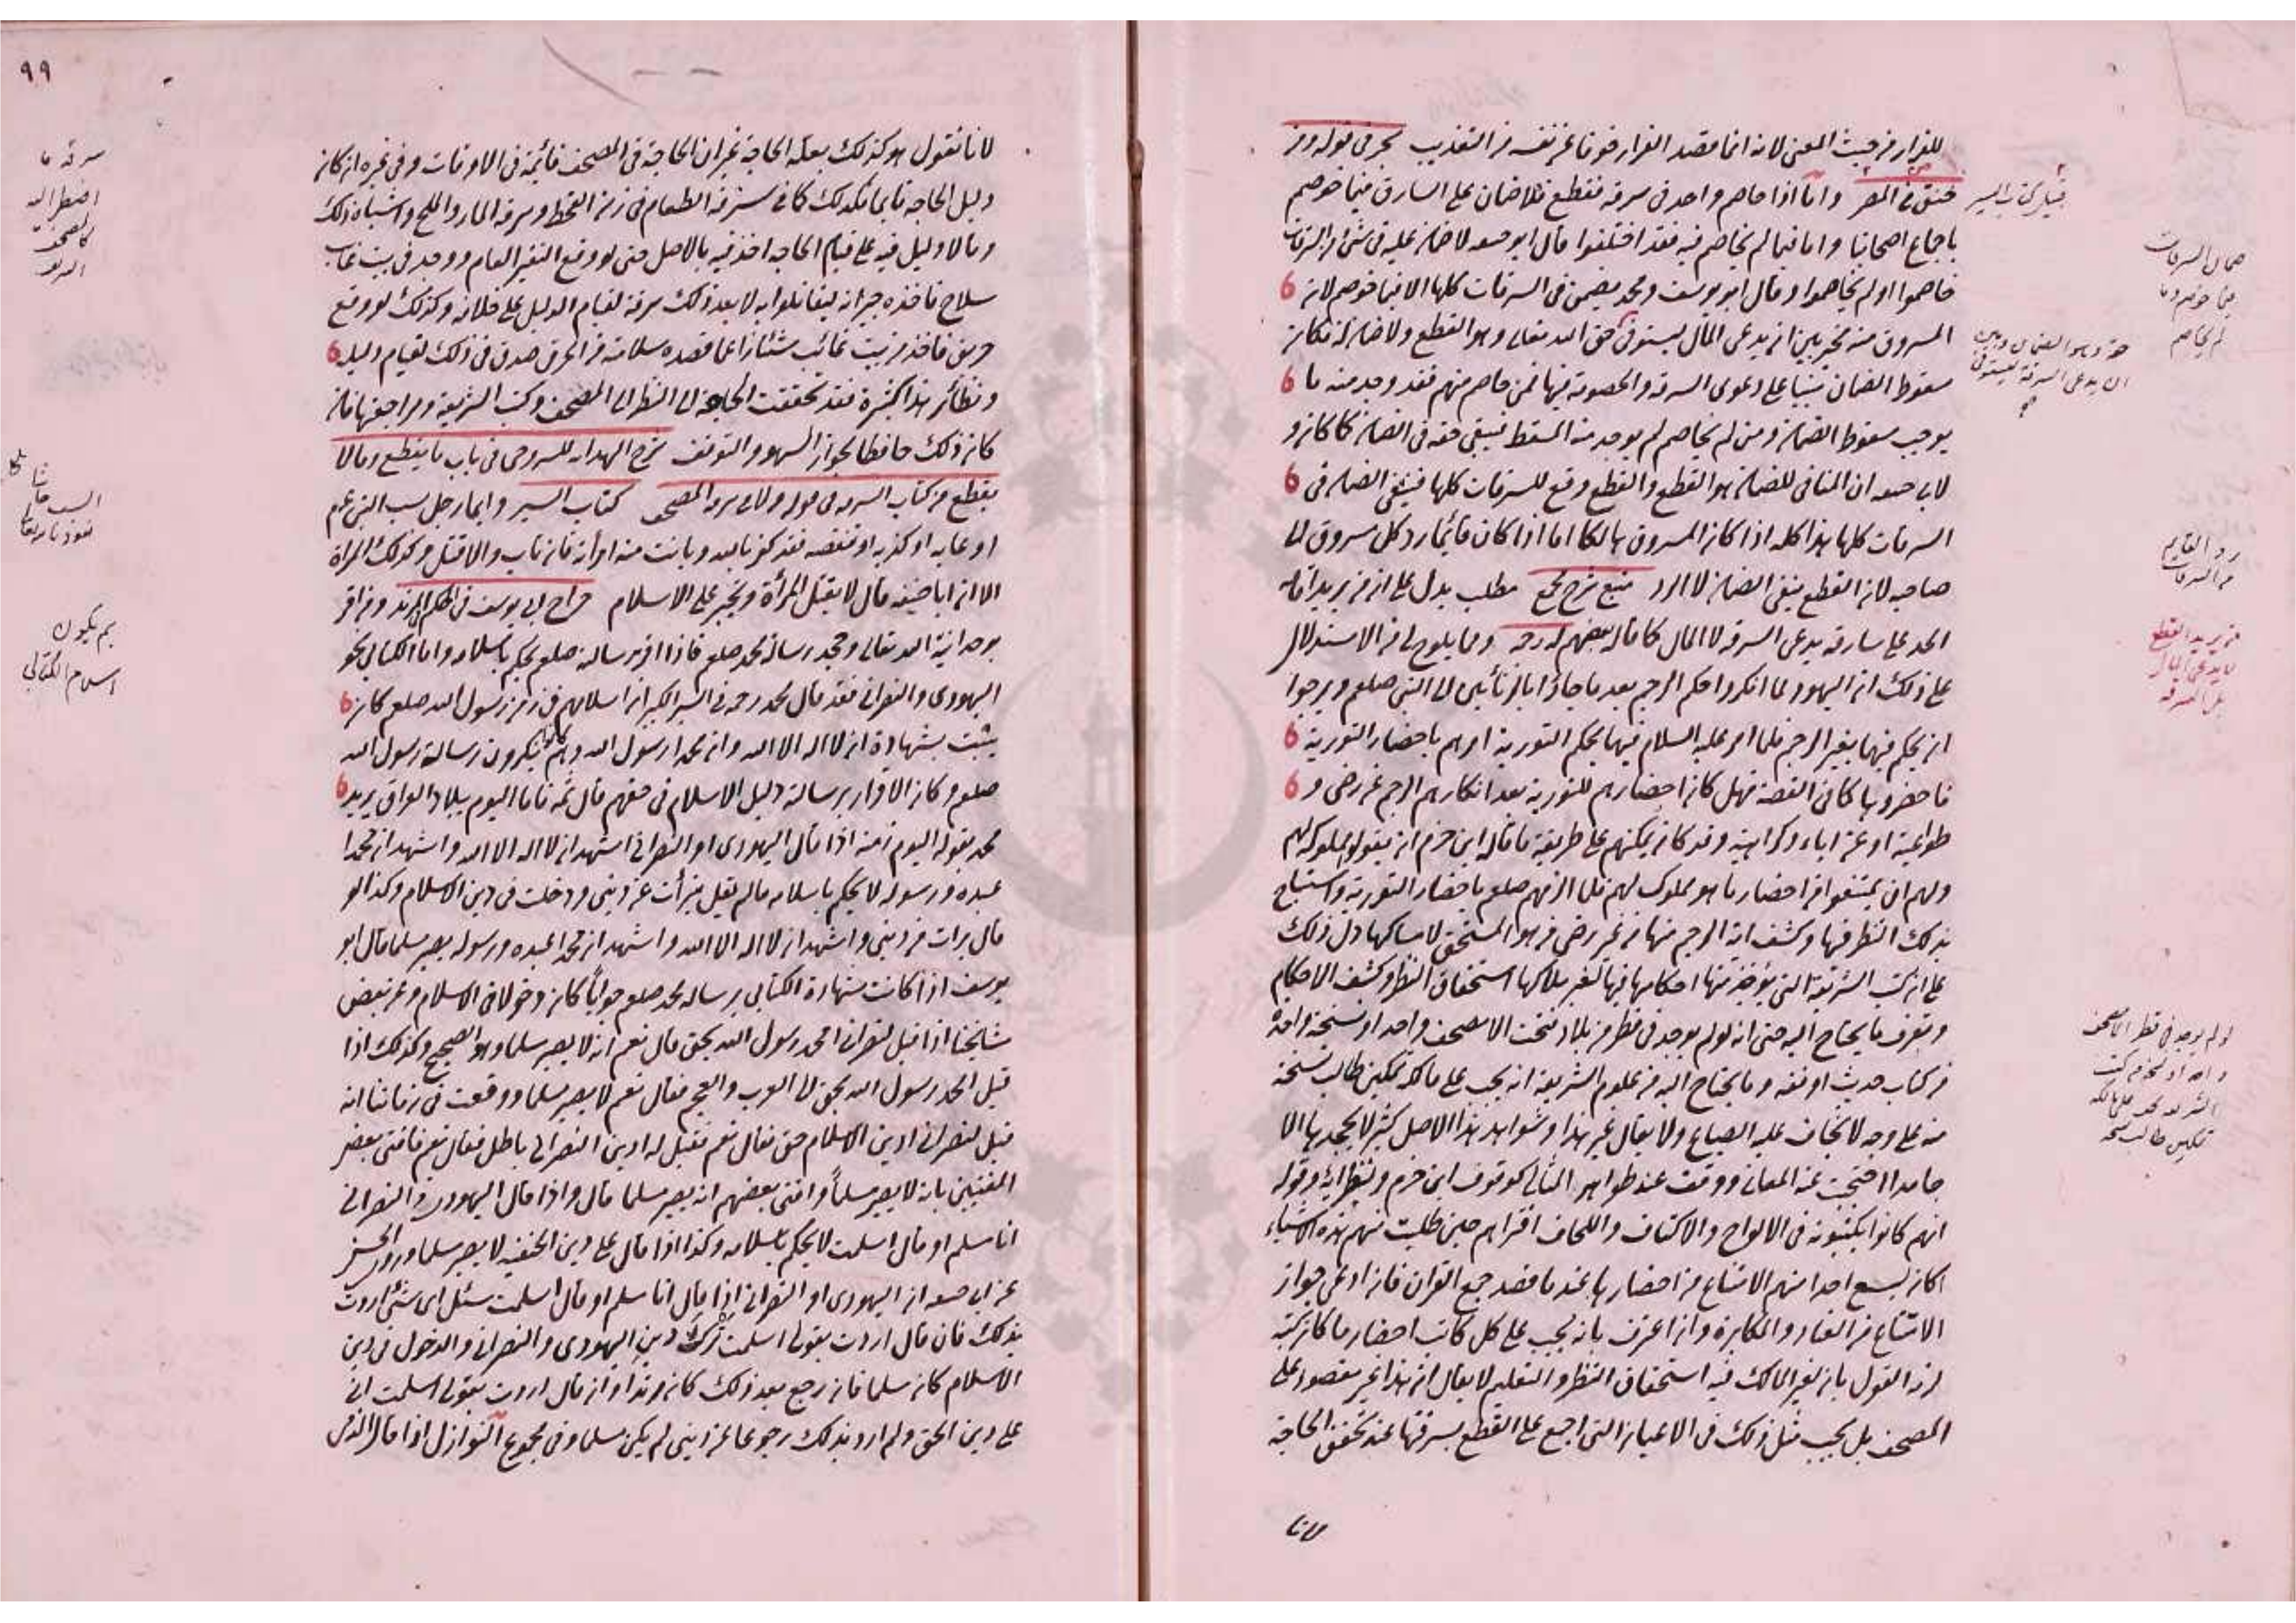 للفرار من حيث المعنى لانه انما قصد الفرار خوفا عن نفسه من التعذيب بحر في قوله ومن
خنق في المصر واما اذا خاصم واحد في سرقة فقطع فلا ضمان على السارق فيما خوصم
باجماع اصحابنا واما فيما لم يخاصم فيه فقد اختلفوا قال ابو حنيفة لا ضمان عليه في شئ من السرقات
خاصموا او لم يخاصموا وقال ابو يوسف ومحمد يضمن في السرقات كلها الا فيما خوصم لان
المسروق منه مخير بين ان يدعى المال ليستوفى حق الله تعالى وهو القطع ولا ضمان له فكان
سقوط الضمان مبنيا على دعوى السرقة والخصومة فيها فمن خاصم منهم فقد وجد منه ما
يوجب سقوط الضمان ومن لم يخاصم لم يوجد منه المسقط فيبقى حقه في الضمان كما كان و
لابى حنيفة ان المنافى للضمان هو القطع والقطع وقع للسرقات كلها فينتفى الضمان في
السرقات كلها هذا كله اذا كان المسروق هالكا اما اذا كان قائما رد كل مسروق الى
صاحبه لان القطع ينفى الضمان لا الرد منبع شرح مجمع مطلب يدل على ان من يريد اقامة
الحد على سارقه يدعى السرقة لا المال كما قاله بعضهم له رحمه ومما يلوح لى من الاستدلال
على ذلك ان اليهود لما انكروا حكم الرجم بعد ما جاؤا بالزانيين الى النبى صلعم ورجوا
ان يحكم فيها بغير الرجم فلما امر عليه السلام فيها بحكم التورية امرهم باحضار التورية
فاحضروها كما في القصة فهل كان احضارهم للتورية بعد انكارهم الرجم عن رضى و
طواعية او عن اباء وكراهية وقد كان يمكنهم على طريقة ما قاله ابن حزم ان يقولوا مملوكة لهم
ولهم ان يمتنعوا من احضار ما هو مملوك لهم فلما الزمهم صلعم باحضار التورية واستباح
بذلك النظر فيها وكشف اية الرجم منها من غير رضى من هو المستحق لامساكها دل ذلك
على ان كتب الشريعة التى يؤخذ منها احكامها فيها لغير ملاكها استحقاق النظر وكشف الاحكام
وتعرف ما يحتاج اليه حتى انه لو لم يوجد في قطر من بلاد فتحت الا مصحف واحد او نسخة واحدة
من كتاب حديث او فقه وما يحتاج اليه من علوم الشريعة انه يجب على مالكه تمكين طالب نسخة
منه على وجه لا تخاف عليه الضياع ولا يقال غير هذا وشواهد هذا الاصل كثير لا يجحدها الا
جامدا احتجبت عنه المعانى ووقف عند ظواهر المثانى كوقوف ابن حزم ونظرائه وقوله
انهم كانوا يكتبونه في الالواح والاكتاف واللخاف افتراهم حين طلبت منهم هذه الاشياء
اكان يسع احدا منهم الامتناع من احضارها عند ما قصد جمع القران فان ادعى جواز
الامتناع من العناد والمكابرة وان اعترف بانه يجب على كل كاتب احضار ما كان كتبه
لزمه القول بان لغير المالك فيه استحقاق النظر والتعليم لا يقال ان هذا غير مقصود على
المصحف بل يجب مثل ذلك في الاعيان التى اجمع على القطع بسرقتها عند تحقق الحاجة
لانا
قبيل كتاب السير
ضمان السرقات
فيما خوصم وما
لم يخاصم
رد القائم
من السرقات
من يريد القطع
لا يدعى المال
بل السرقة
لو لم يوجد في قطر الا مصحف
واحد او نسخة من كتب
الشريعة يجب على مالكه
تمكين طالب نسخه
٩٩
لانا نقول هو كذلك بعلة الحاجة غير ان الحاجة في المصحف قائمة في الاوقات وفي غيره ان كان
دليل الحاجة قائما فكذلك كما في سرقة الطعام في زمن القحط وسرقة الماء والملح واشباه ذلك
وما لا دليل فيه على قيام الحاجة اخذ فيه بالاصل حتى لو وقع النفير العام ووجد في بيت غائب
سلاح فاخذه جيرانه ليقاتلوا به لا يعد ذلك سرقة لقيام الدليل على خلافه وكذلك لو وقع
حريق فاخذ من بيت غائب شيئا زاعما قصده سلامته من الحرق صدق في ذلك لقيام دليله
ونظائر هذا كثيرة فقد تحققت الحاجة الى النظر الى المصحف وكتب الشريعة ومراجعتها فان
كان ذلك حافظا لجواز السهو والتوقف شرح الهداية للسروجى في باب ما يقطع وما لا
يقطع من كتاب السرقة في قوله ولا في سرقة المصحف كتاب السير وايما رجل سب النبى عم
او عابه او كذبه او تنقصه فقد كفر بالله وبانت منه امرأته فان تاب والا قتل وكذلك المرأة
الا ان ابا حنيفة قال لا يقتل المرأة وتجبر على الاسلام خراج ابى يوسف في الحكم المرتد ومن اقر
بوحدانية الله تعالى وجحد رسالة محمد صلعم فاذا اقر برسالته صلعم يحكم باسلامه واما الكتابى نحو
اليهودى والنصرانى فقد قال محمد رحمه في السير الكبير ان اسلامهم في زمن رسول الله صلعم كان
يثبت بشهادة ان لا اله الا الله وان محمدا رسول الله وهم كانوا ينكرون رسالة رسول الله
صلعم وكان الاقرار برسالته دليل الاسلام في حقهم قال ثمه فاما اليوم ببلاد العراق يريد
محمد بقوله اليوم زمنه اذا قال اليهودى او النصرانى اشهد ان لا اله الا الله واشهد ان محمدا
عبده ورسوله لا يحكم باسلامه ما لم يقل تبرأت عن دينى ودخلت في دين الاسلام وكذا لو
قال برات من دينى واشهد ان لا اله الا الله واشهد ان محمدا عبده ورسوله يصير مسلما قال ابو
يوسف اذا كانت شهادة الكتابى برسالة محمد صلعم جوابًا كان دخولا في الاسلام وعن بعض
مشايخنا اذا قيل لنصرانى امحمد رسول الله بحق قال نعم انه لا يصير مسلما وهو الصحيح وكذلك اذا
قيل امحمد رسول الله بحق الى العرب والعجم فقال نعم لا يصير مسلما ووقعت في زماننا انه
قيل لنصرانى ادين الاسلام حق فقال نعم فقيل له ادين النصرانى باطل فقال نعم فافتى بعض
المفتيين بانه لا يصير مسلمًا وافتى بعضهم انه يصير مسلما قال واذا قال اليهودى والنصرانى
انا مسلم او قال اسلمت لا يحكم باسلامه وكذا اذا قال على دين الحنيفة لا يصير مسلما وروى الحسن
عن ابى حنيفة ان اليهودى او النصرانى اذا قال انا مسلم او قال اسلمت سئل اى شئ اردت
بذلك فان قال اردت بقولى اسلمت ترك دين اليهودى والنصرانى والدخول في دين
الاسلام كان مسلما فان رجع بعد ذلك كان مرتدا وان قال اردت بقولى اسلمت انى
على دين الحق ولم ارد بذلك رجوعا عن دينى لم يكن مسلما وفي مجموع النوازل اذا قال الذمى
سرقة ما
اضطر اليه
كالمصحف
بم يكون
اسلام الكتابى